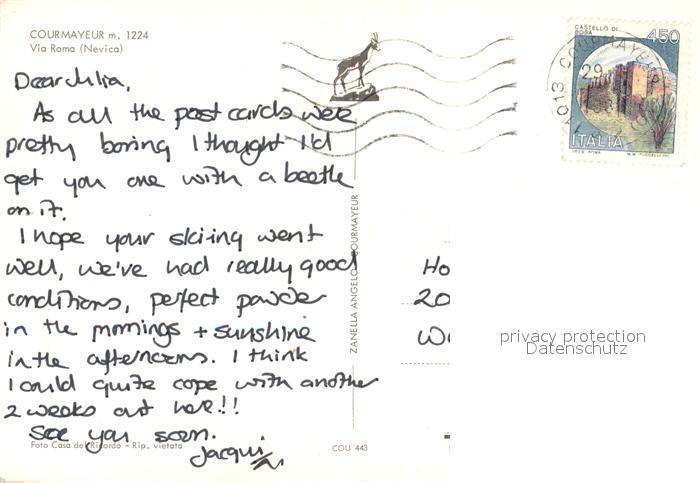 COURMAYEUR m. 1224
Via Roma (Nevica)
Dear Julia,
As all the post cards were
pretty boring I thought I'd
get you one with a beetle
on it.
I hope your skiing went
well, we've had really good
conditions, perfect powder
in the mornings + sunshine
in the afternoons. I think
I could quite cope with another
2 weeks out here!!
See you soon.
Jacqui
Foto Casa del Ricordo - Rip. vietata
COU 443
ZANELLA ANGELO COURMAYEUR
CASTELLO DI
BOSA
450
ITALIA
11013 COURMAYEUR
29
Ho
20
privacy protection
Datenschutz